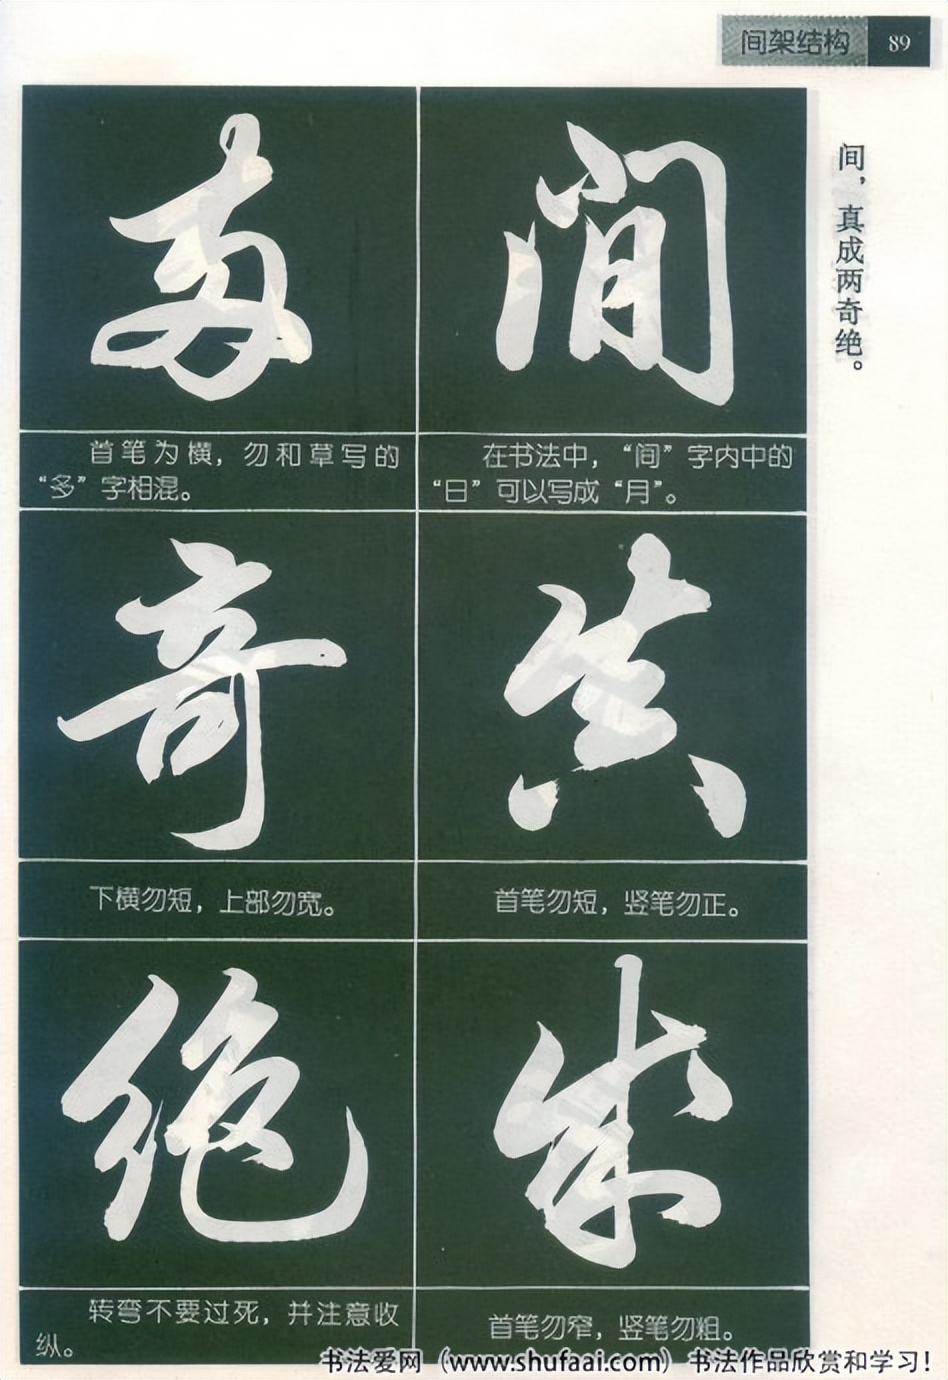 间架结构 89
间，真成两奇绝。
間
在书法中，“间”字内中的
“日”可以写成“月”。
真
首笔勿短，竖笔勿正。
成
首笔勿窄，竖笔勿粗。
两
首笔为横，勿和草写的
“多”字相混。
奇
下横勿短，上部勿宽。
绝
转弯不要过死，并注意收
纵。
书法爱网（www.shufaai.com）书法作品欣赏和学习！